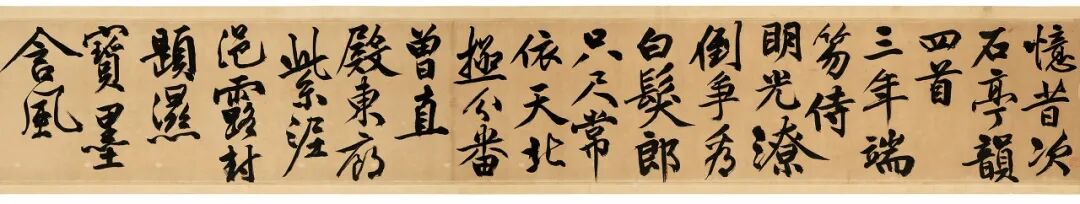 憶昔次
石亭韻
四首
三年端
笏侍
明光潦
倒爭看
白髮郎
只尺常
依天北
極分番
曾直
殿東廊
紫泥
浥露封
題濕
寶墨
含風